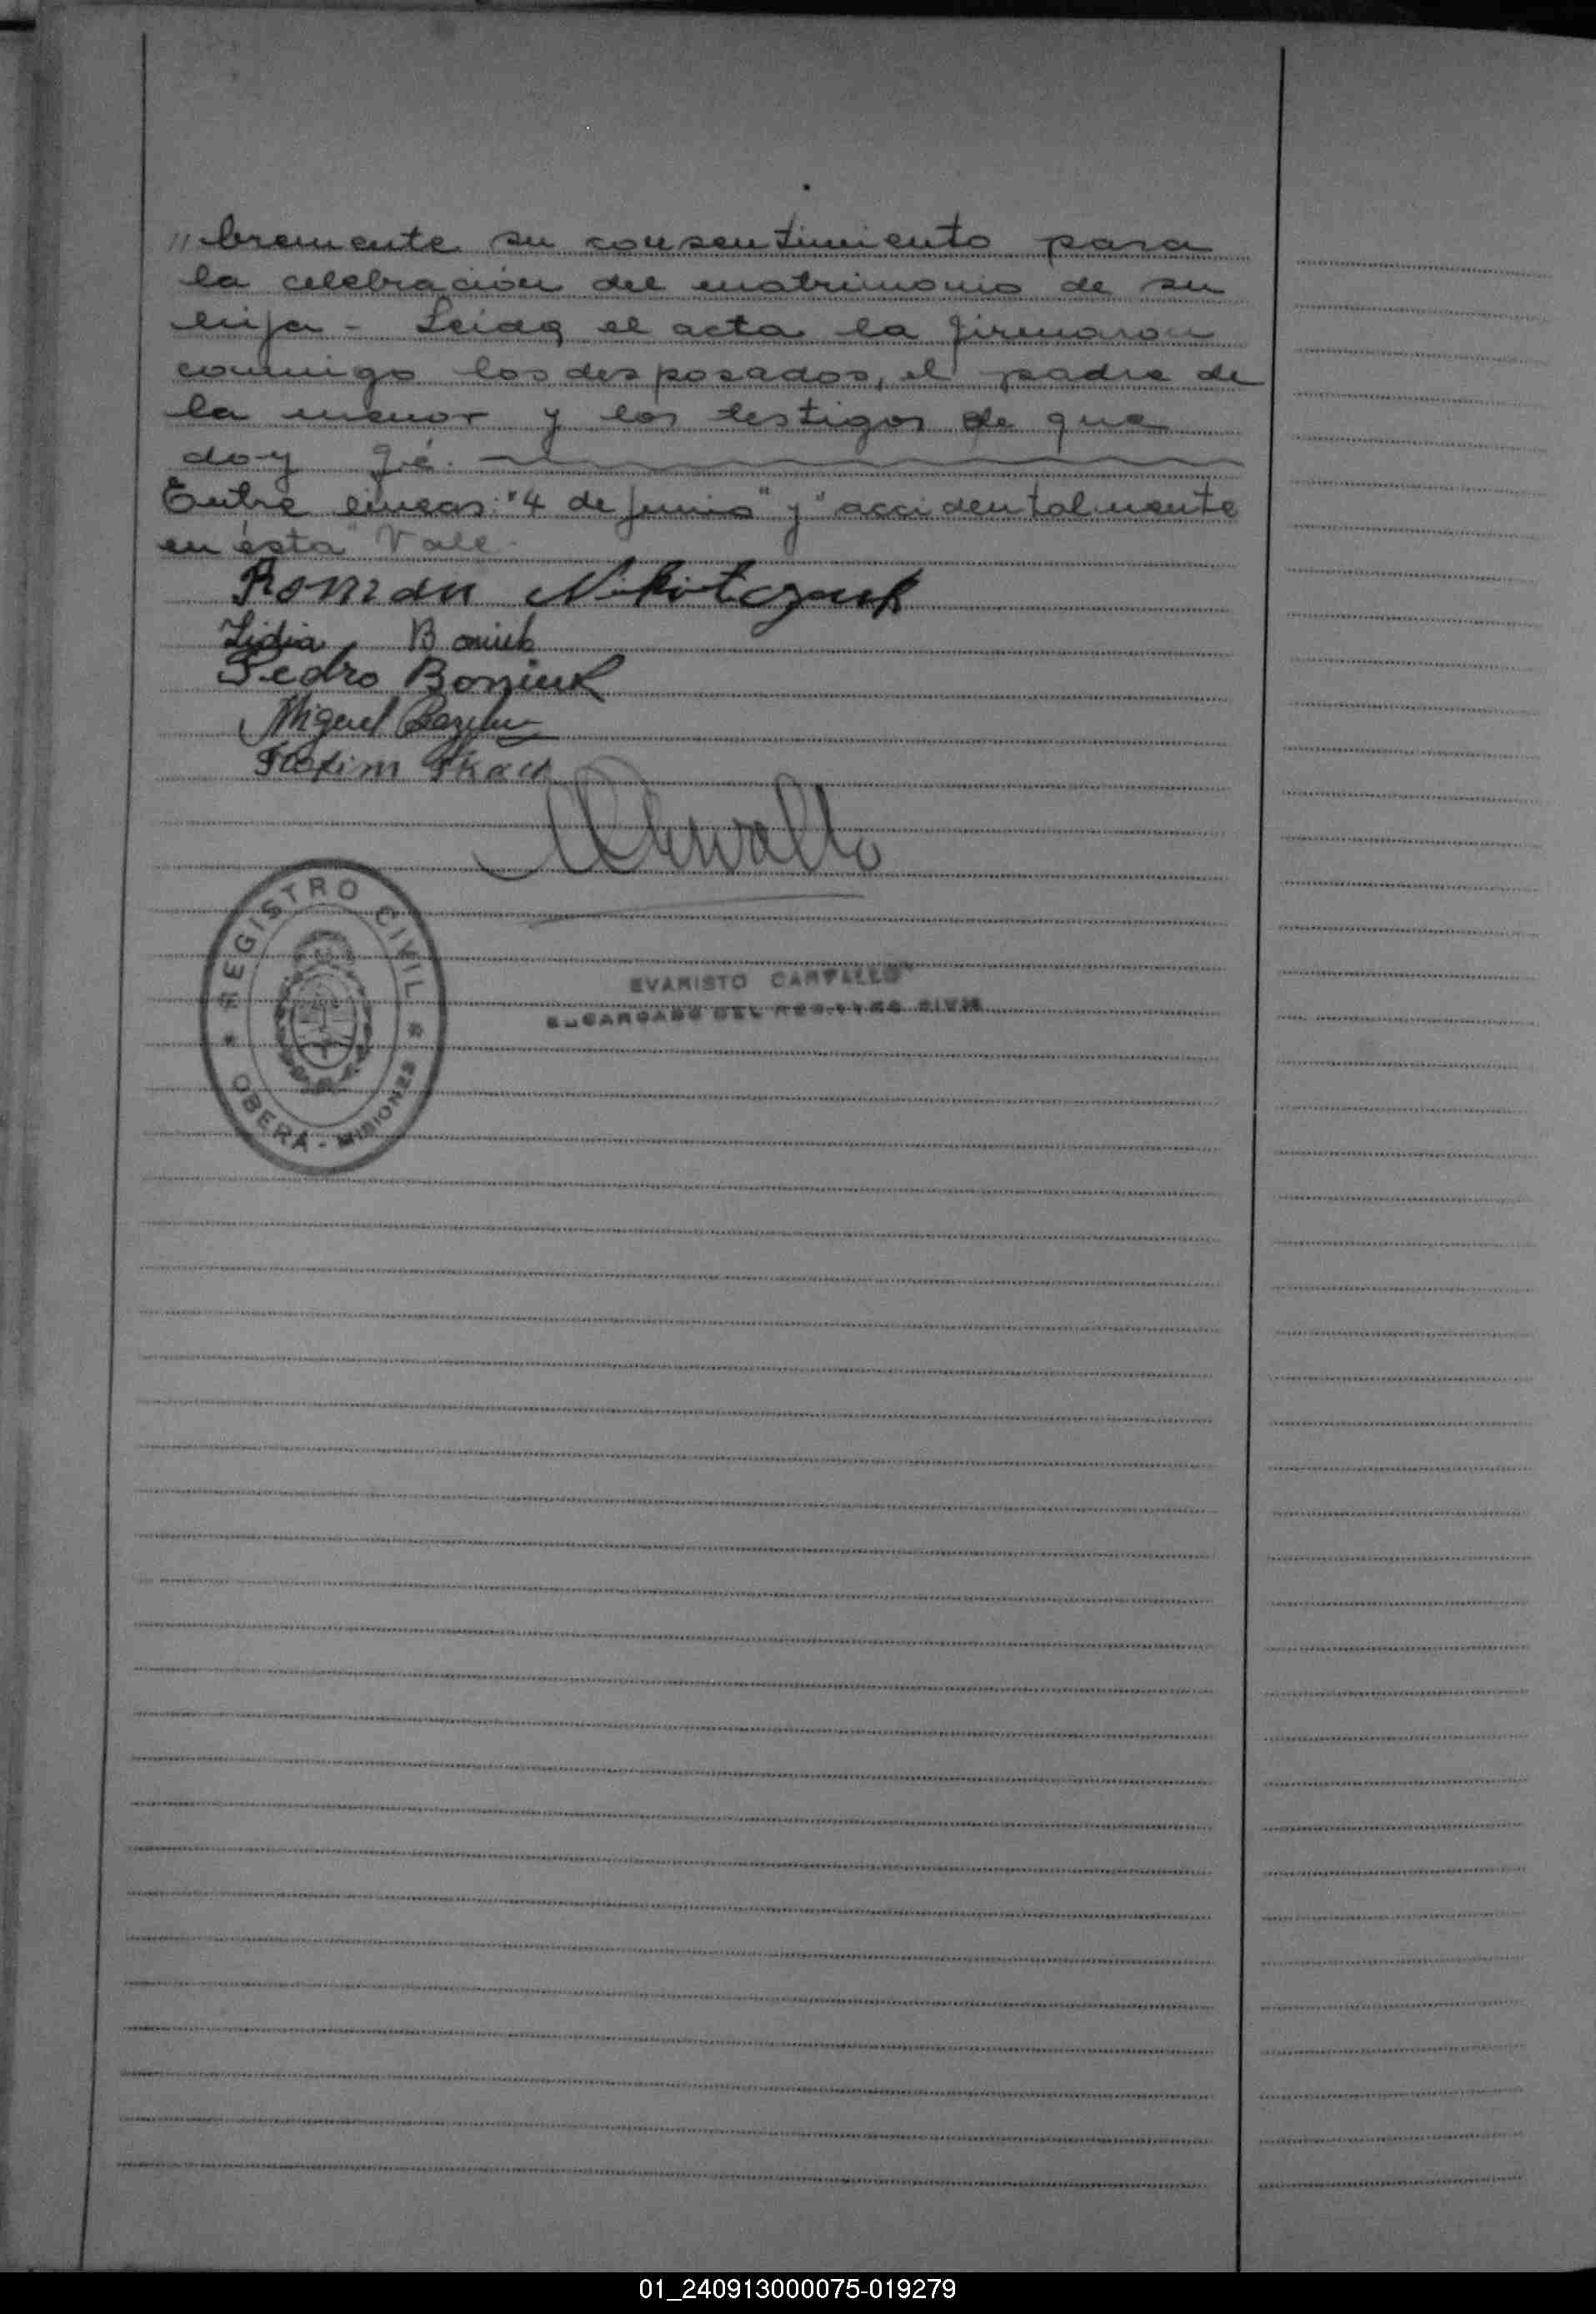 "bremente su consentimiento para
la celebración del matrimonio de su
hija - Leida el acta la firmaron
conmigo los desposados, el padre de
la menor y los testigos de que
doy fé.
Entre lineas: "4 de junio" y "accidentalmente
en ésta" Vale.
Roman Nikitczuk
Lidia Boniuk
Pedro Boniuk
Miguel
REGISTRO CIVIL
OBERÁ - MISIONES
EVARISTO CARVALLO
ENCARGADO DEL REGISTRO CIVIL
01_240913000075-019279